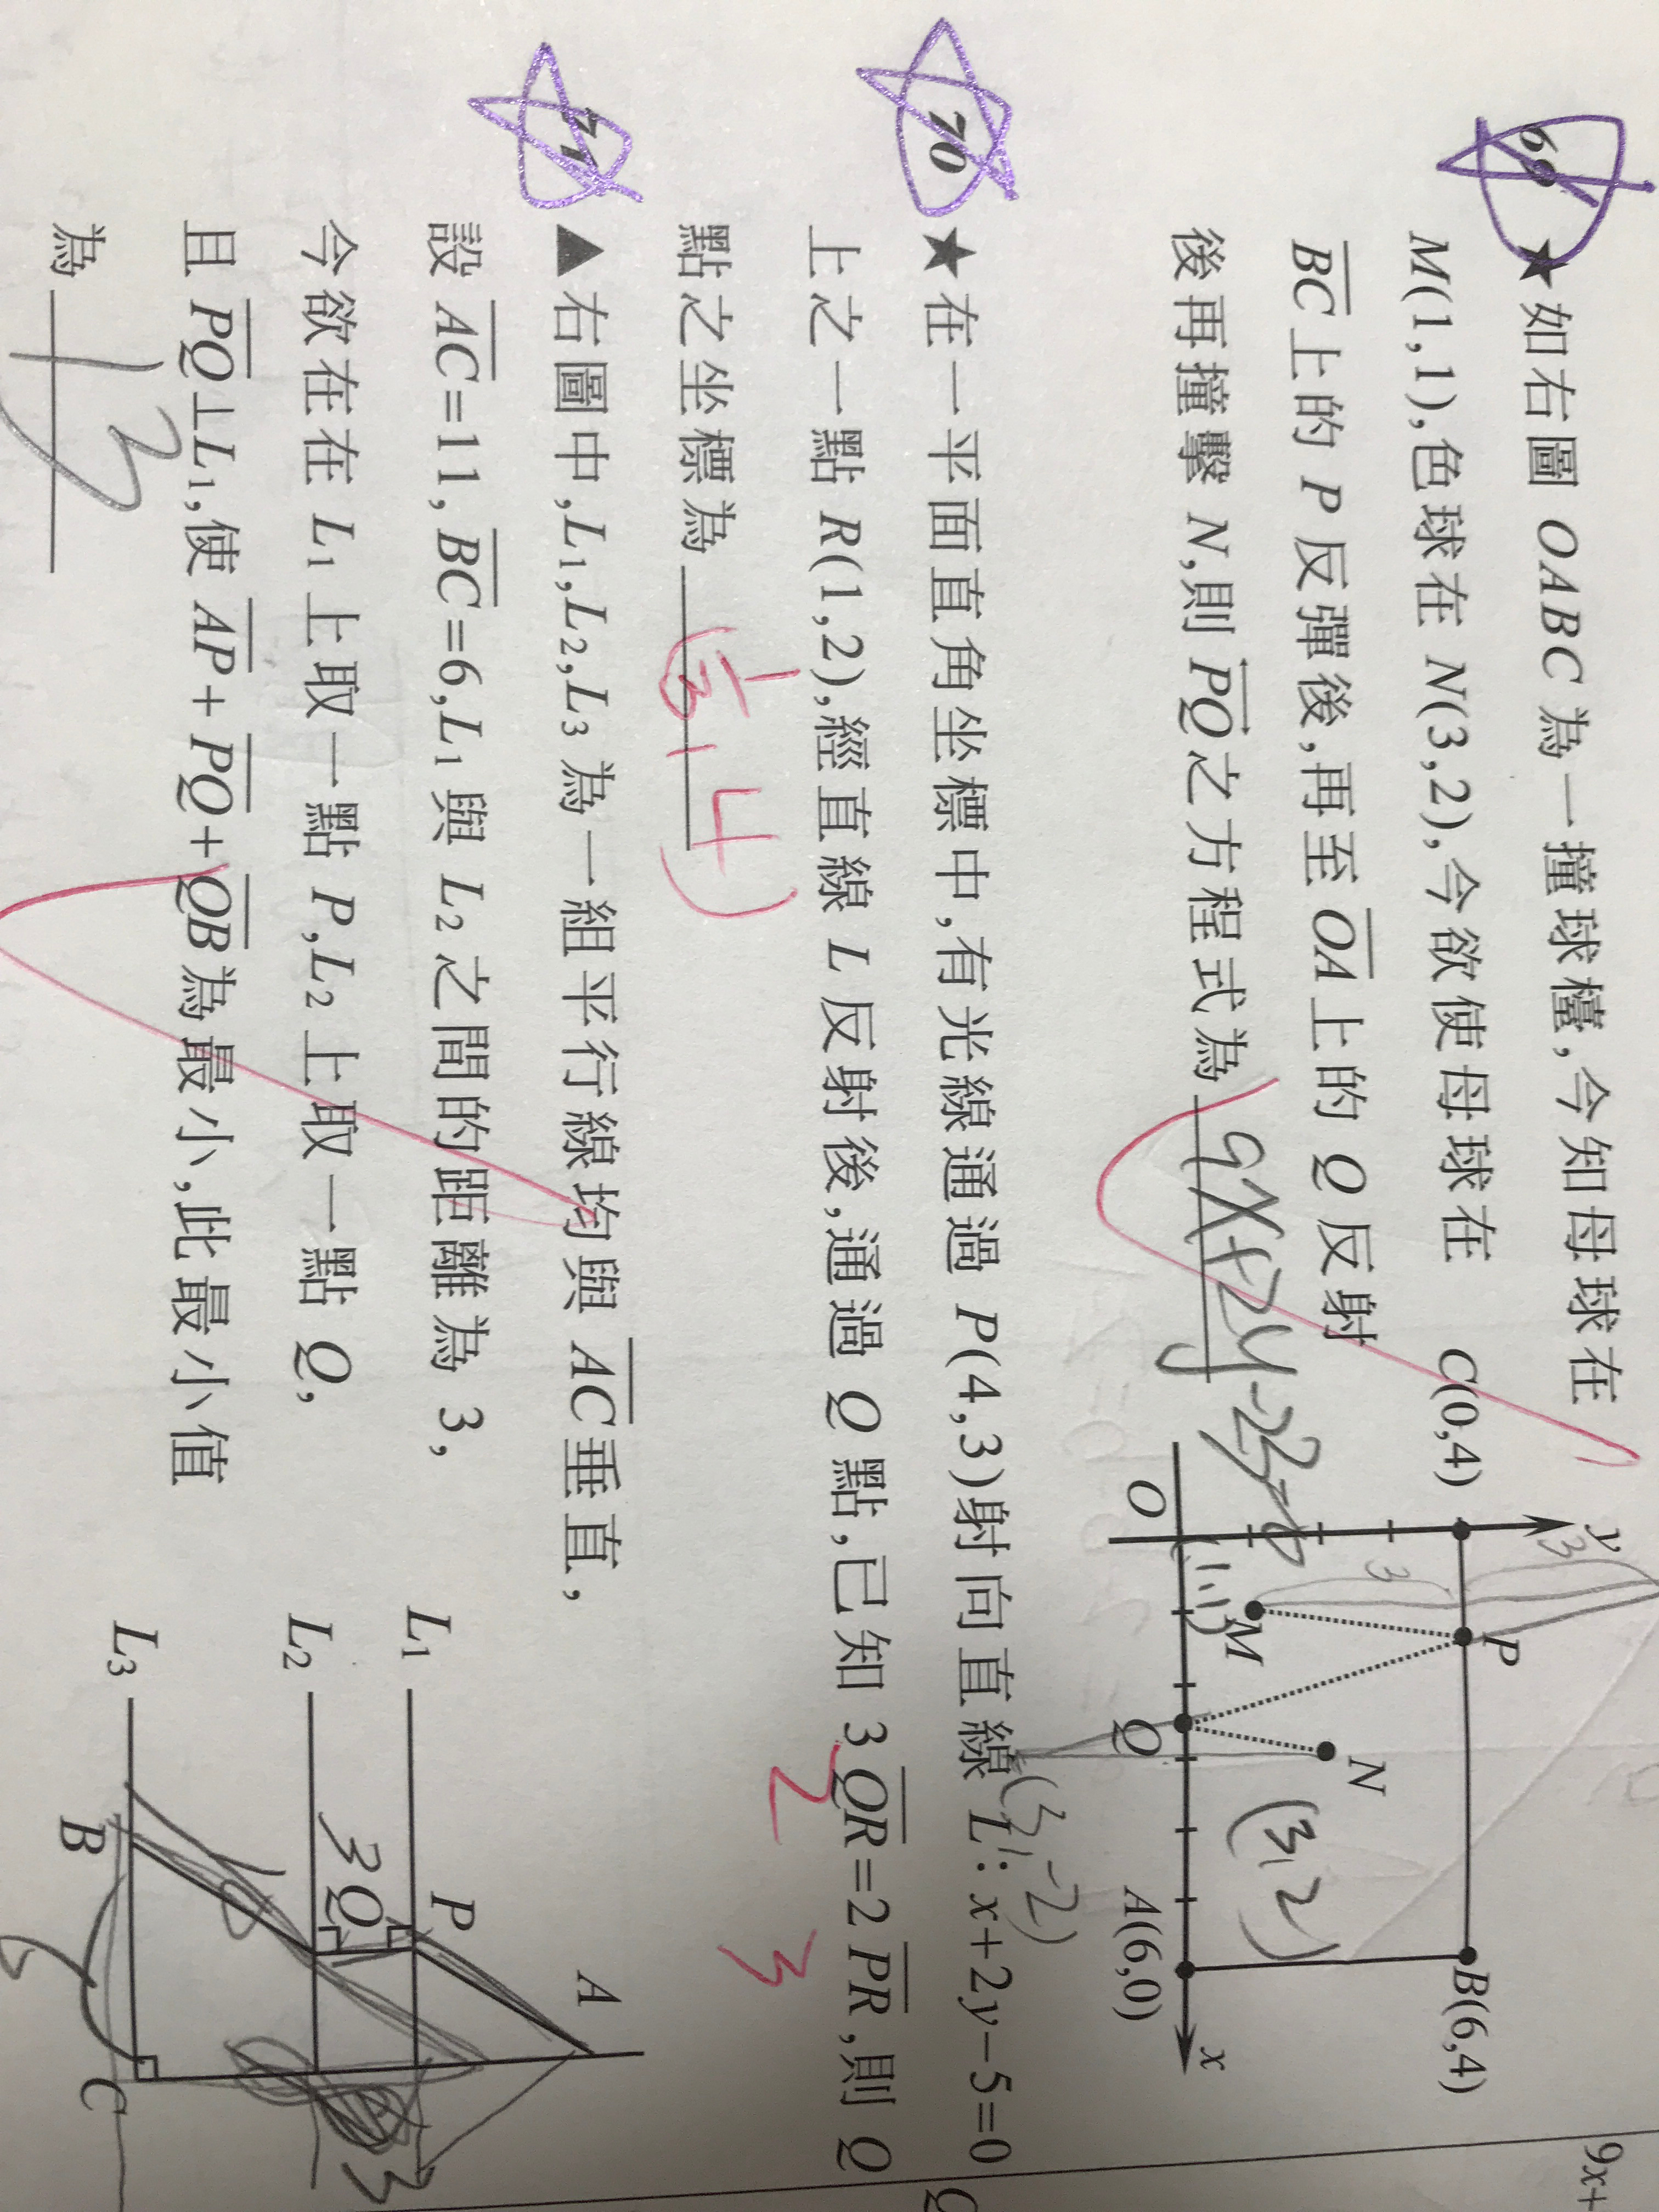 69 ★如右圖 OABC 為一撞球檯,今知母球在
M(1,1),色球在 N(3,2),今欲使母球在
BC上的 P 反彈後,再至OA上的 Q 反射
後再撞擊 N,則PQ之方程式為 9x+2y-23=0
y
3
3
C(0,4)
P
B(6,4)
N
(3,2)
M
(1,1)
O
Q
A(6,0)
x
(3,-2)
70 ★在一平面直角坐標中,有光線通過 P(4,3)射向直線 L: x+2y-5=0
上之一點 R(1,2),經直線 L 反射後,通過 Q 點,已知 3QR=2PR,則 Q
2 3
點之坐標為 (1/3, 4)
71 ▲右圖中,L1,L2,L3為一組平行線均與AC垂直,
設AC=11,BC=6,L1與 L2之間的距離為 3,
今欲在在 L1 上取一點 P,L2上取一點 Q,
且PQ⊥L1,使AP+PQ+QB為最小,此最小值
為 13
A
L1
P
L2
3
Q
10
3
L3
B
C
9x+